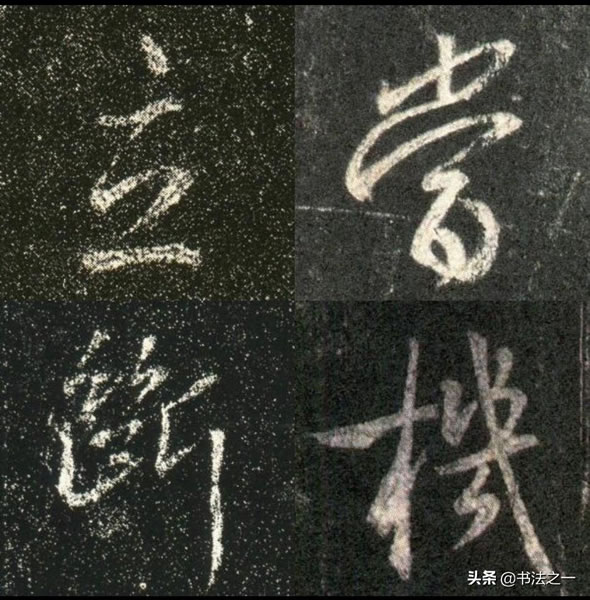 當機
立斷
头条 @书法之一